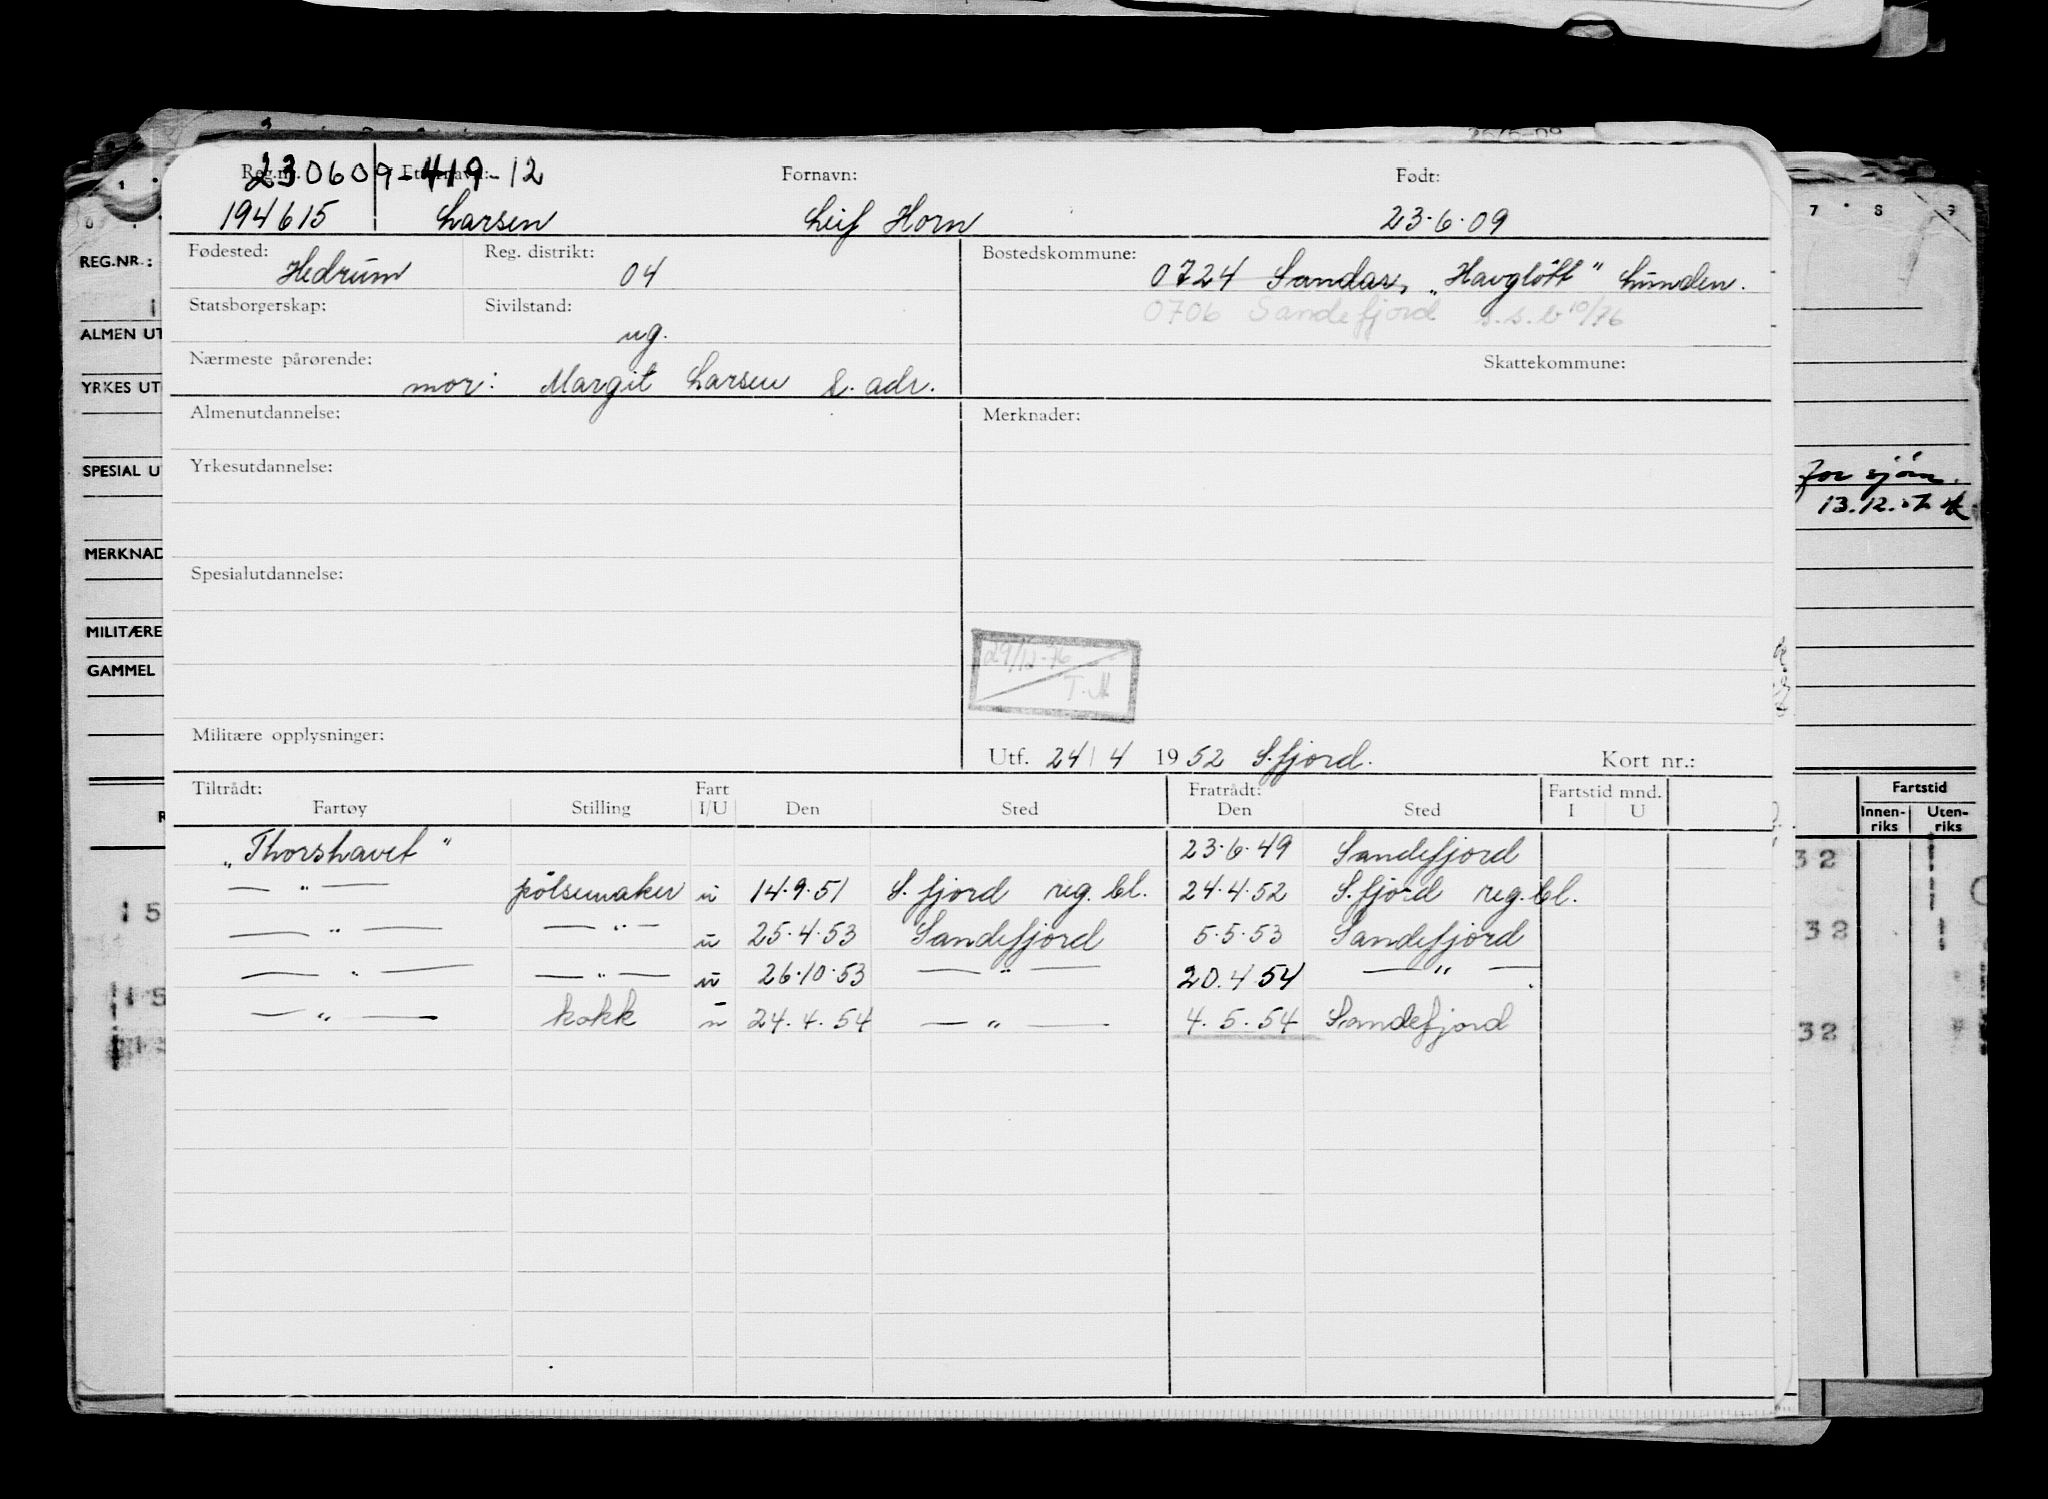 230609-419-12
Reg.nr. Etternavn: Fornavn: Født:
194615 Larsen Leif Horn 23.6.09
Fødested: Hedrum Reg. distrikt: 04 Bostedskommune: 0724 Sandar, „Havgløtt" Lunden.
Statsborgerskap: Sivilstand: ug. 0706 Sandefjord s.s.b 10/76
Nærmeste pårørende: mor: Margit Larsen s. adr. Skattekommune:
Almenutdannelse: Merknader:
Yrkesutdannelse:
Spesialutdannelse:
29/12-76
T.M
Militære opplysninger: Utf. 24/4 1952 S.fjord. Kort nr.:
Tiltrådt: Fart Fratrådt: Fartstid mnd.
Fartøy Stilling I/U Den Sted Den Sted I U
„Thorshavet" 23.6.49 Sandefjord
— " — pölsemaker u 14.9.51 S.fjord reg.bl. 24.4.52 S.fjord reg.bl.
— " — — " — u 25.4.53 Sandefjord 5.5.53 Sandefjord
— " — — " — u 26.10.53 — " — 20.4.54 — " —
— " — kokk u 24.4.54 — " — 4.5.54 Sandefjord
REG.NR.:
ALMEN UT
YRKES UT
SPESIAL U
MERKNAD
MILITÆRE
GAMMEL
7 8 9
for sjöm.
13.12.57
Fartstid
Innen-riks Uten-riks
32
32
32